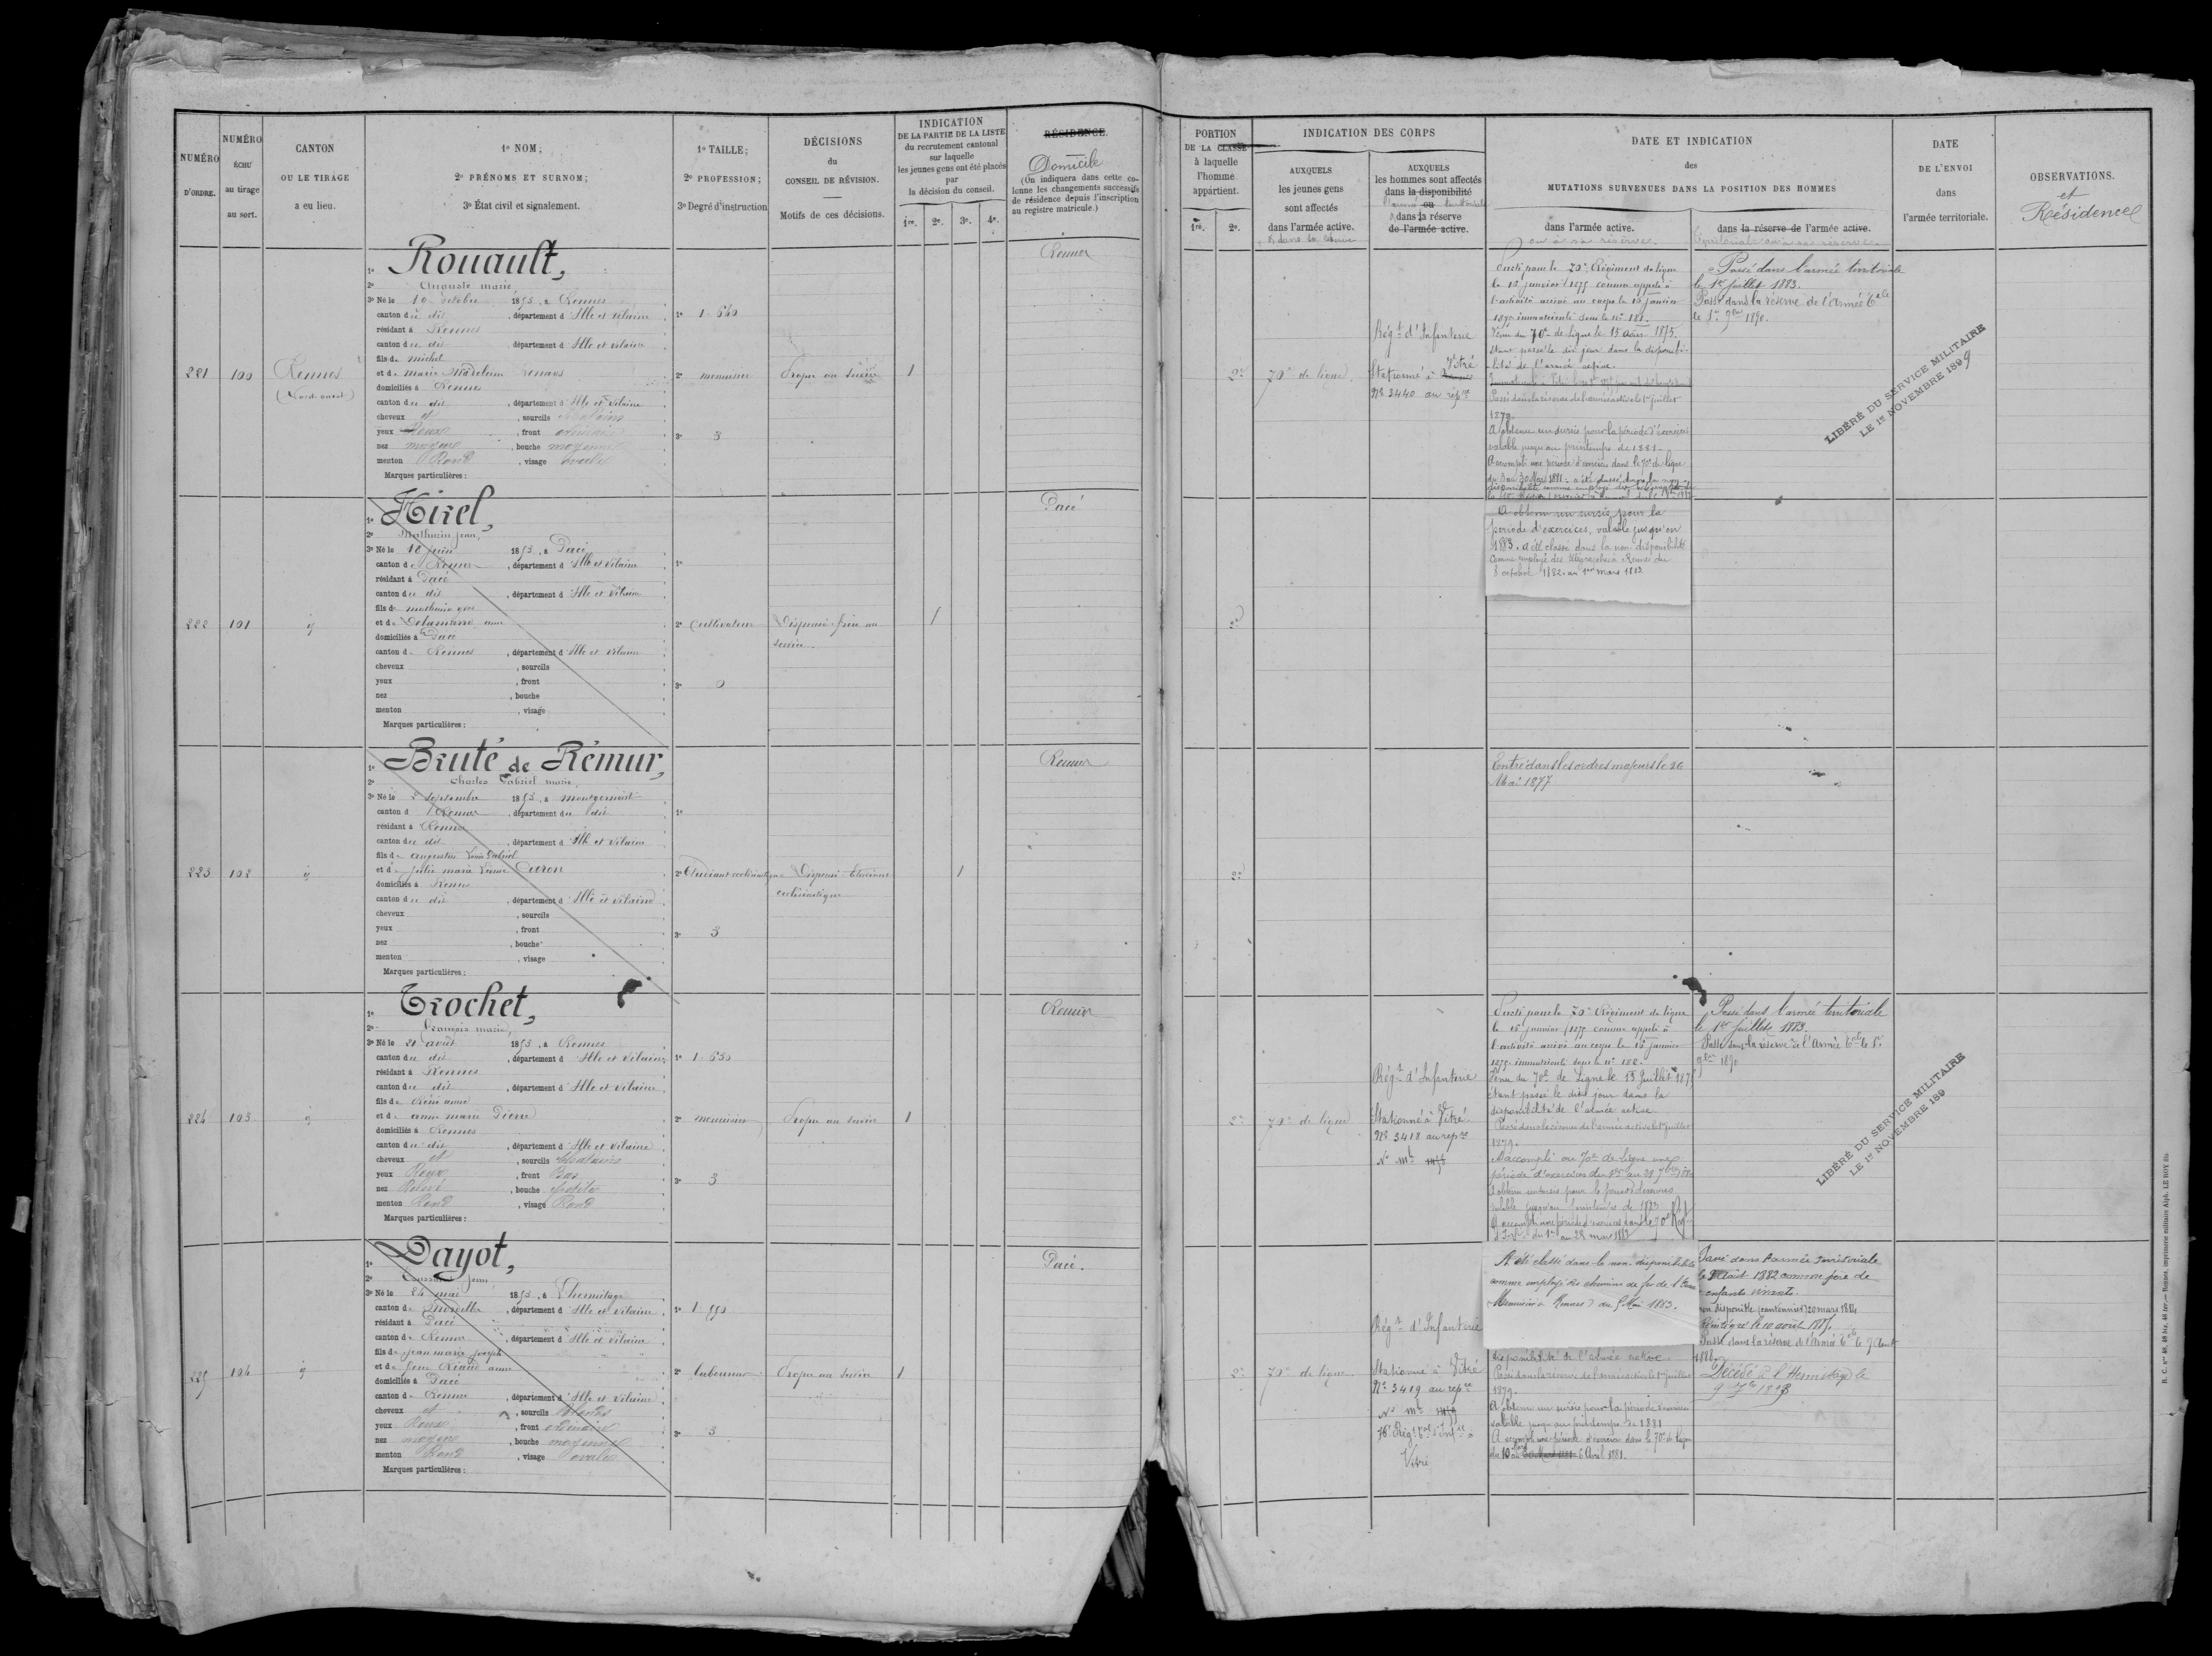 NUMÉRO
D'ORDRE.
NUMÉRO
ÉCHU
au tirage
au sort.
CANTON
OU LE TIRAGE
a eu lieu.
1º NOM;
2º PRÉNOMS ET SURNOM;
3º État civil et signalement.
1º TAILLE;
2º PROFESSION;
3º Degré d'instruction
DÉCISIONS
du
CONSEIL DE RÉVISION.
Motifs de ces décisions.
INDICATION
DE LA PARTIE DE LA LISTE
du recrutement cantonal
sur laquelle
les jeunes gens ont été placés
par
la décision du conseil.
1re. 2e. 3e. 4e.
RÉSIDENCE.
Domicile
(On indiquera dans cette co-
lonne les changements successifs
de résidence depuis l'inscription
au registre matricule.)
PORTION
DE LA CLASSE
à laquelle
l'homme
appartient.
1re. 2e.
INDICATION DES CORPS
AUXQUELS
les jeunes gens
sont affectés
dans l'armée active.
AUXQUELS
les hommes sont affectés
dans la disponibilité
ou
dans la réserve
de l'armée active.
DATE ET INDICATION
des
MUTATIONS SURVENUES DANS LA POSITION DES HOMMES
dans l'armée active.
ou à sa réserve.
dans la réserve de l'armée active.
DATE
DE L'ENVOI
dans
l'armée territoriale.
OBSERVATIONS.
et
Résidence
221 100 Rennes
(Nord-ouest)
1º Rouault,
2º Auguste marie,
3º Né le 19 octobre 1853, à Rennes
canton du dit, département d'Ille et Vilaine
résidant à Rennes
canton du dit, département d'Ille et Vilaine
fils de michel
et de marie Madeleine
domiciliés à Rennes
canton du dit, département d'Ille et Vilaine
cheveux et, sourcils Chatains
yeux Roux, front ordinaire
nez moyen, bouche moyenne
menton Rond, visage ovale
Marques particulières :
1º 1.640
2º menuisier
3º 3
Propre au service
1
Rennes
2e
70e de ligne
Régt d'Infanterie
Stationné à Vitré
Nº 3440 au repre
Parti pour le 70e Régiment de ligne
le 15 janvier 1875 comme appelé à
l'activité arrivé au corps le 15 janvier
1875 immatriculé sous le nº 181.
Venu du 70e de Ligne le 15 août 1875.
étant passé le dit jour dans la disponibi-
lité de l'armée active.
Passé dans la réserve de l'armée active le 1er juillet
1879.
A obtenu un sursis pour la période d'exercices
valable jusqu'au printemps de 1881.
A accompli une période d'exercices dans le 70e de ligne
du 3 au 30 Mars 1881. a été classé dans la non
A obtenu un sursis pour la
période d'exercices, valable jusqu'en
1883. a été classé dans la non-disponibilité
comme employé des télégraphes à Rennes du
8 octobre 1882 au 1er mars 1883
Passé dans l'armée territoriale
le 1er Juillet 1883.
Passé dans la réserve de l'Armée Tale
le 1er 9bre 1890.
LIBÉRÉ DU SERVICE MILITAIRE
LE 1er NOVEMBRE 1899
222 101 id
1º Hirel,
2º Mathurin Jean,
3º Né le 18 juin 1853, à Pacé
canton de Rennes, département d'Ille et Vilaine
résidant à Pacé
canton du dit, département d'Ille et Vilaine
fils de mathurin
et de Delamarre anne
domiciliés à Pacé
canton de Rennes, département d'Ille et Vilaine
cheveux, sourcils
yeux, front
nez, bouche
menton, visage
Marques particulières :
1º
2º Cultivateur
3º 0
Dispensé frère au
service
1
Pacé
2e
223 102 id
1º Bruté de Rémur,
2º Charles Gabriel marie
3º Né le 2 septembre 1853, à montgermont
canton d Rennes, département du dit
résidant à Rennes
canton du dit, département d'Ille et Vilaine
fils de augustin Louis Gabriel
et de julie marie Caron
domiciliés à Rennes
canton du dit, département d'Ille et Vilaine
cheveux, sourcils
yeux, front
nez, bouche
menton, visage
Marques particulières :
1º
2º Etudiant ecclésiastique
3º 3
Dispensé Etudiant
ecclésiastique
1
Rennes
2e
Entré dans les ordres majeurs le 26
Mai 1877
224 103 id
1º Trochet,
2º François marie,
3º Né le 21 août 1853, à Rennes
canton du dit, département d'Ille et Vilaine
résidant à Rennes
canton du dit, département d'Ille et Vilaine
fils de René
et de anne marie Pierre
domiciliés à Rennes
canton du dit, département d'Ille et Vilaine
cheveux et, sourcils Chatains
yeux Roux, front Bas
nez Relevé, bouche petite
menton Rond, visage Rond
Marques particulières :
1º 1.650
2º menuisier
3º 3
Propre au service
1
Rennes
2e
70e de ligne
Régt d'Infanterie
Stationné à Vitré
Nº 3418 au repre
Nº Mle
Parti pour le 70e Régiment de ligne
le 15 janvier 1875 comme appelé à
l'activité arrivé au corps le 15 janvier
1875 immatriculé sous le nº 182.
Venu du 70e de Ligne le 15 Juillet 1875
étant passé le dit jour dans la
disponibilité de l'armée active
Passé dans la réserve de l'armée active le 1er juillet
1879.
A accompli au 70e de ligne une
période d'exercices du 1er au 28 7bre
A obtenu un sursis pour la période d'exercices
valable jusqu'au printemps de 1883
A accompli une période d'exercices dans le 70e Régt
d'Infie du 1er au 28 mars 1883
Passé dans l'armée territoriale
le 1er Juillet 1883.
Passé dans la réserve de l'Armée Tale le 1er
9bre 1890
LIBÉRÉ DU SERVICE MILITAIRE
LE 1er NOVEMBRE 189
225 104 id
1º Dayot,
2º Toussaint Jean
3º Né le 24 mai 1853, à Lhermitage
canton de Mordelles, département d'Ille et Vilaine
résidant à Pacé
canton de Rennes, département d'Ille et Vilaine
fils de jean marie joseph
et de Riaud anne
domiciliés à Pacé
canton de Rennes, département d'Ille et Vilaine
cheveux et, sourcils Blonds
yeux Roux, front ordinaire
nez moyen, bouche moyenne
menton Rond, visage ovale
Marques particulières :
1º 1.550
2º laboureur
3º 3
Propre au service
1
Pacé.
2e
70e de ligne
Régt d'Infanterie
Stationné à Vitré
Nº 3419 au repre
Nº Mle
76e Régt Tal d'Infie à
Vitré
A été classé dans la non-disponibilité
comme employé des chemins de fer de l'Ouest
Menuisier à Rennes du 5 Mai 1883.
disponibilité de l'armée active
Passé dans la réserve de l'armée active le 1er juillet
1879.
A obtenu un sursis pour la période d'exercices
valable jusqu'au printemps de 1881
A accompli une période d'exercices dans le 70e de ligne
du 10 au 6 Avril 1881.
Passé dans l'armée territoriale
le 9 Août 1882 comme père de
enfants vivants.
non disponible (cantonnier) 20 mars 1884
Réintégré le 10 août 1885.
Passé dans la réserve de l'Armée Tale le 9 Août
1888.
Décédé à l'Hermitage le
9 7bre 1893
R. C. nos 48, 48 bis, 48 ter. — Rennes, imprimerie militaire Alph. LE ROY fils